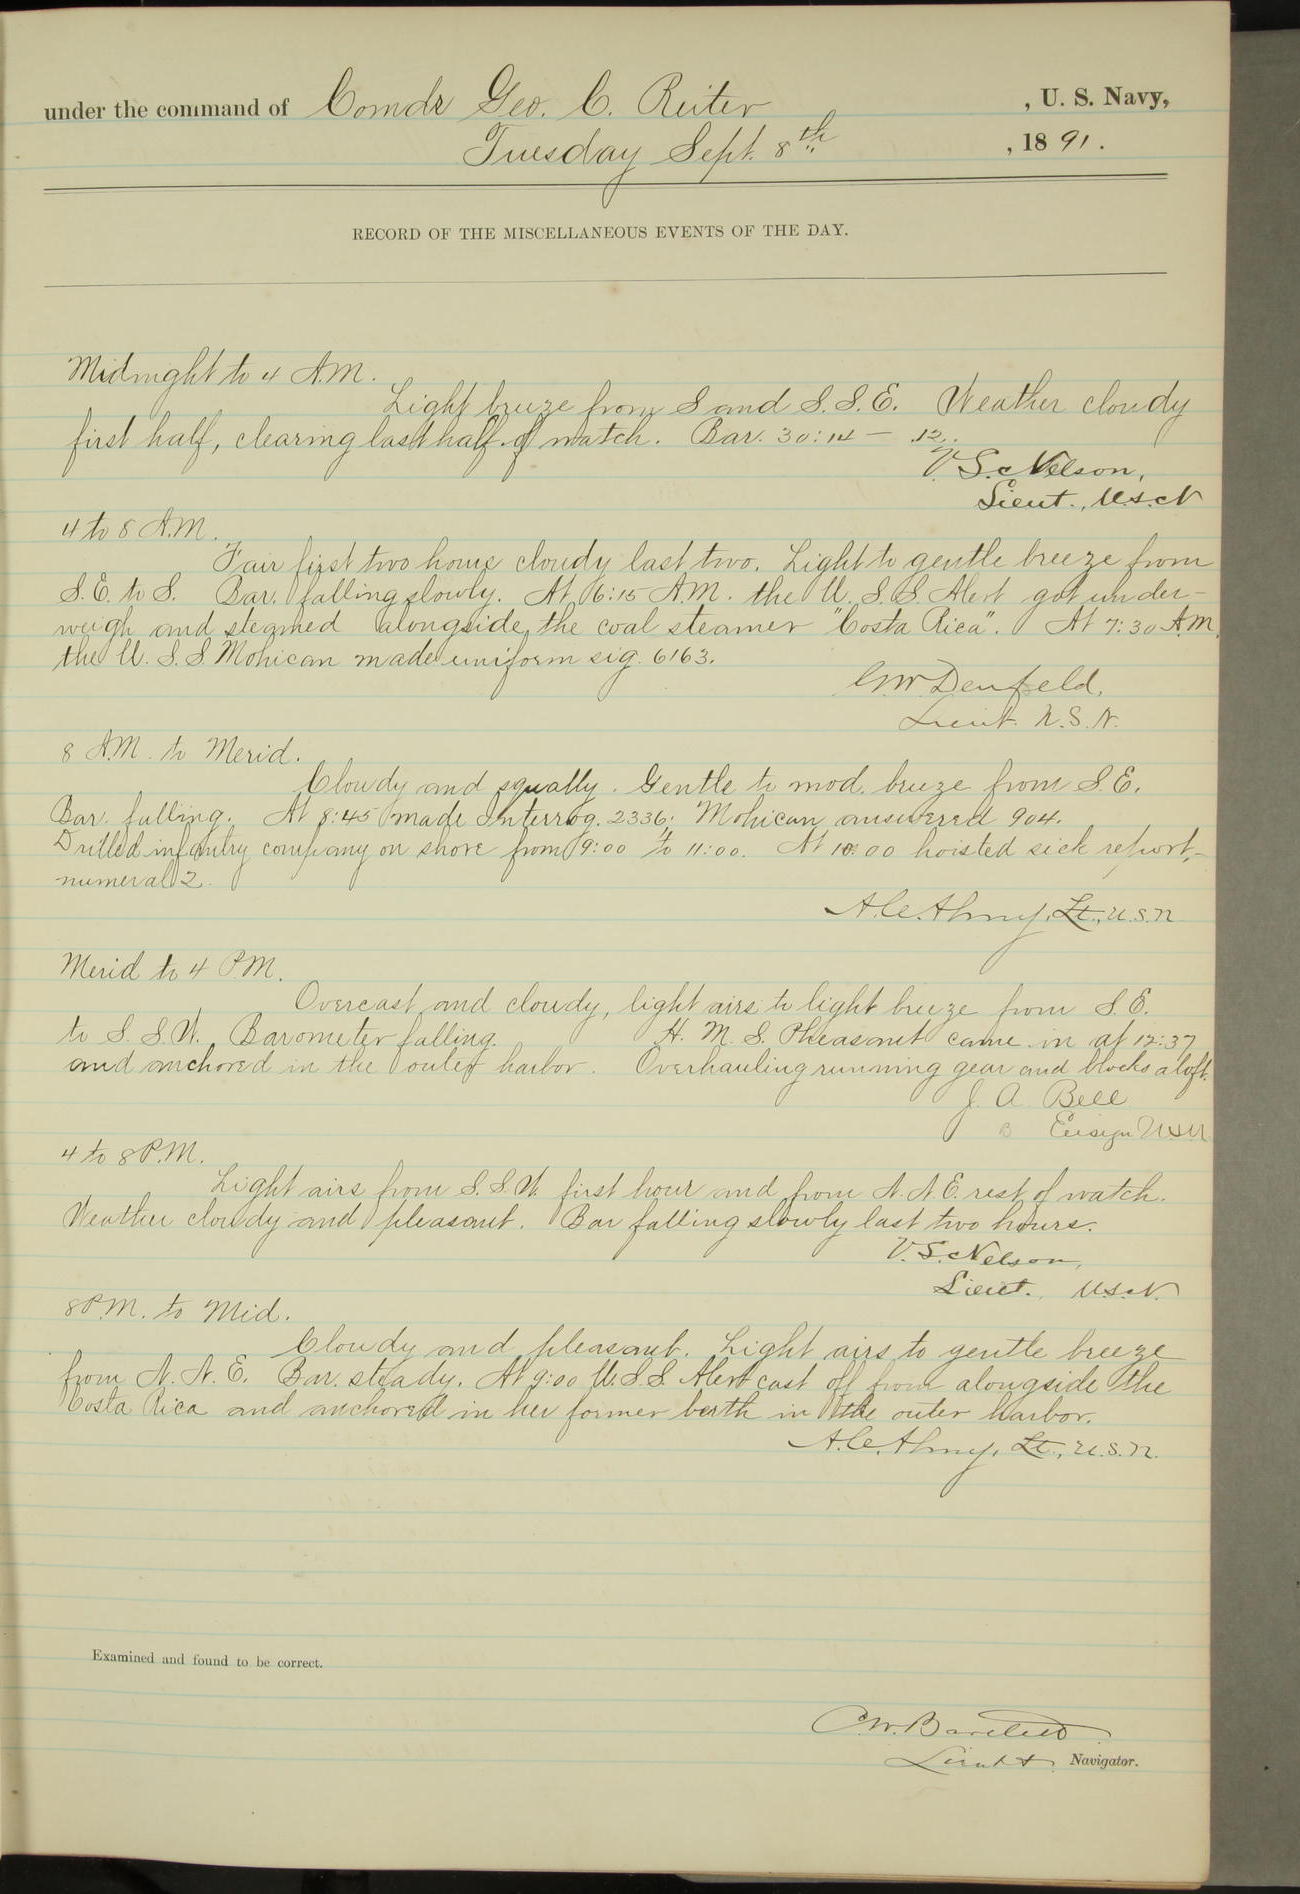 under the command of Comdr Geo. C. Reiter , U. S. Navy,
Tuesday Sept. 8th , 1891.
RECORD OF THE MISCELLANEOUS EVENTS OF THE DAY.
Midnight to 4 A.M.
Light breeze from S and S.S.E. Weather cloudy
first half, clearing last half of watch. Bar. 30:14 — .12.
V. S. Nelson,
Lieut., U.S.N
4 to 8 A.M.
Fair first two hours cloudy last two. Light to gentle breeze from
S.E. to S. Bar. falling slowly. At 6:15 A.M. the U. S. S. Alert got under-
weigh and steamed alongside the coal steamer "Costa Rica". At 7:30 A.M.
the U. S. S Mohican made uniform sig. 6163.
Denfeld,
Lieut. U.S.N.
8 A.M. to Merid.
Cloudy and squally. Gentle to mod. breeze from S.E.
Bar. falling. At 8:45 made Interrog. 2336; Mohican answered 904.
Drilled infantry company on shore from 9:00 to 11:00. At 10:00 hoisted sick report,-
numeral 2.
A.C. Almy, Lt., U.S.N
Merid to 4 P.M.
Overcast and cloudy, light airs to light breeze from S.E.
to S.S.W. Barometer falling. H. M. S. Pheasant came in at 12:37
and anchored in the outer harbor. Overhauling running gear and blocks aloft.
J. A. Bell
Ensign USN
4 to 8 P.M.
Light airs from S.S.W. first hour and from N.N.E. rest of watch.
Weather cloudy and pleasant. Bar falling slowly last two hours.
V. S. Nelson,
Lieut. U.S.N.
8 P.M. to Mid.
Cloudy and pleasant. Light airs to gentle breeze
from N.N.E. Bar. steady. At 9:00 U.S.S. Alert cast off from alongside the
Costa Rica and anchored in her former berth in the outer harbor.
A.C. Almy, Lt., U.S.N.
Examined and found to be correct.
C.W. Bartlett
Lieut Navigator.